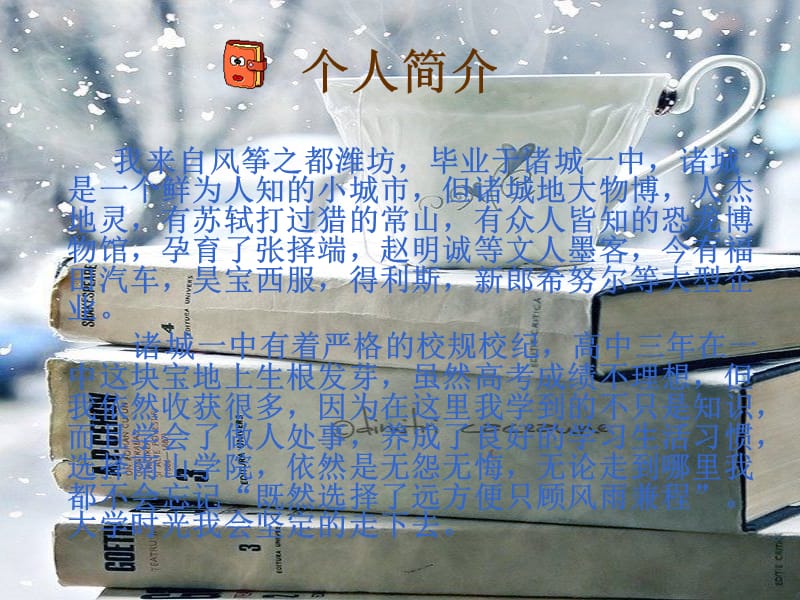 个人简介
我来自风筝之都潍坊，毕业于诸城一中，诸城
是一个鲜为人知的小城市，但诸城地大物博，人杰
地灵，有苏轼打过猎的常山，有众人皆知的恐龙博
物馆，孕育了张择端，赵明诚等文人墨客，今有福
田汽车，昊宝西服，得利斯，新郎希努尔等大型企
业。
诸城一中有着严格的校规校纪，高中三年在一
中这块宝地上生根发芽，虽然高考成绩不理想，但
我依然收获很多，因为在这里我学到的不只是知识，
而且学会了做人处事，养成了良好的学习生活习惯，
选择 学院，依然是无怨无悔，无论走到哪里我
都不会忘记“既然选择了远方便只顾风雨兼程”。
大学时光我会坚定的走下去。
SHAKESPEARE
4
EDITURA UNIVERS
EDITURA CRITICA
3
EDITURA UNIVERS
GOETHE
TEATRU
3
EDITURA UNIVERS
EDITIE CRITICA
2